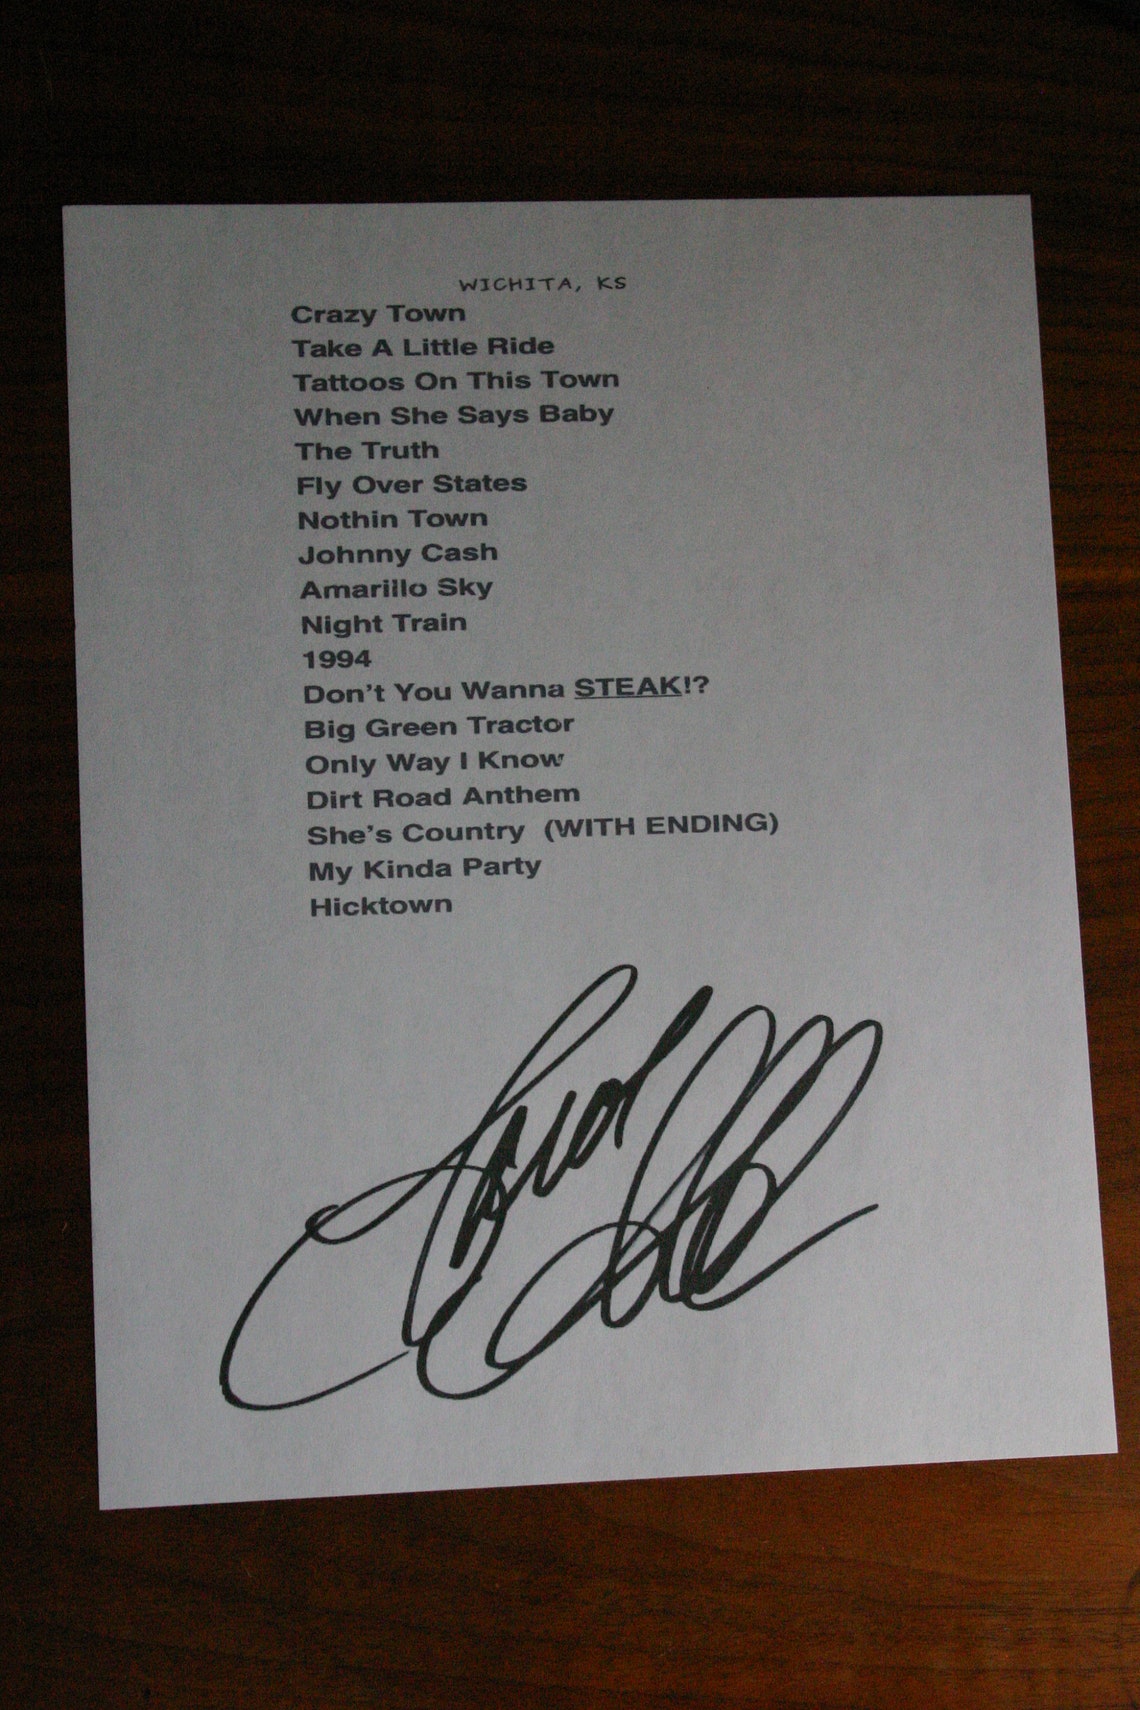 WICHITA, KS
Crazy Town
Take A Little Ride
Tattoos On This Town
When She Says Baby
The Truth
Fly Over States
Nothin Town
Johnny Cash
Amarillo Sky
Night Train
1994
Don't You Wanna STEAK!?
Big Green Tractor
Only Way I Know
Dirt Road Anthem
She's Country (WITH ENDING)
My Kinda Party
Hicktown